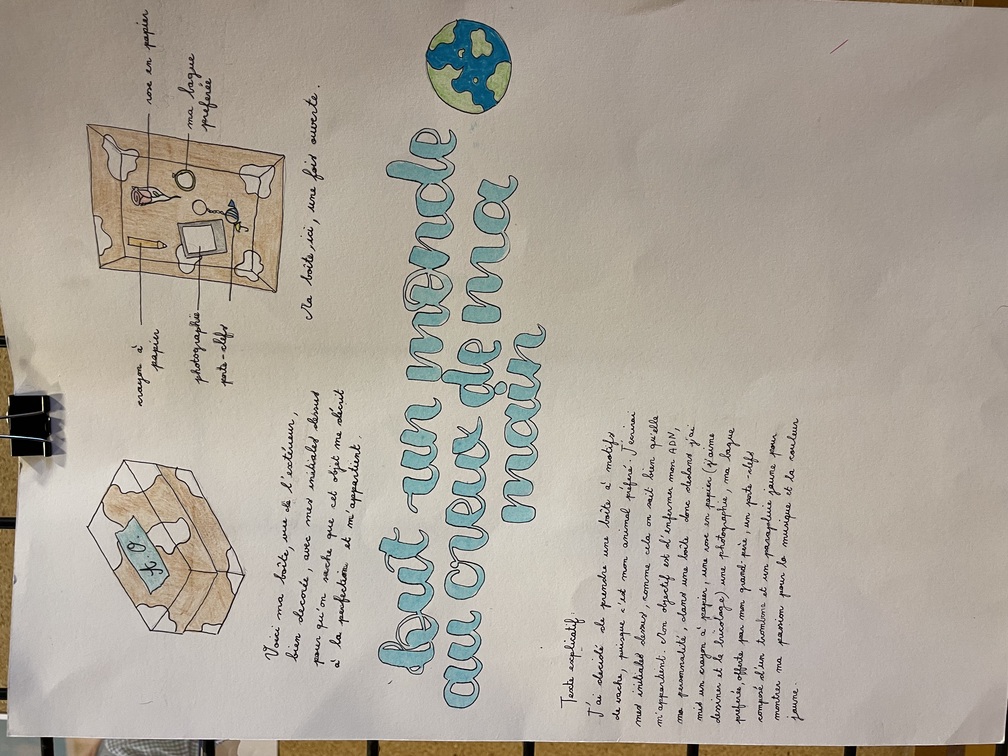 A. O.
Voici ma boîte, vue de l'extérieur,
bien decorée, avec mes initiales dessus
pour qu'on sache que cet objet me décrit
à la perfection et m'appartient.
crayon à
papier
photographie
porte-clefs
rose en papier
ma bague
préférée
Ma boîte, ici, une fois ouverte.
tout un monde
au creux de ma
main
Texte explicatif:
J'ai décidé de prendre une boîte à motifs
de vache, puisque c'est mon animal préféré. J'écrirai
mes initiales dessus, comme cela on sait bien qu'elle
m'appartient. Mon objectif est d'enfermer mon ADN,
ma personnalité, dans une boîte donc dedans j'ai
mis un crayon à papier, une rose en papier (j'aime
dessiner et le bricolage) une photographie, ma bague
préférée, offerte par mon grand-père, un porte-clefs
composé d'un trombone et un parapluie jaune pour
montrer ma passion pour la musique et la couleur
jaune.